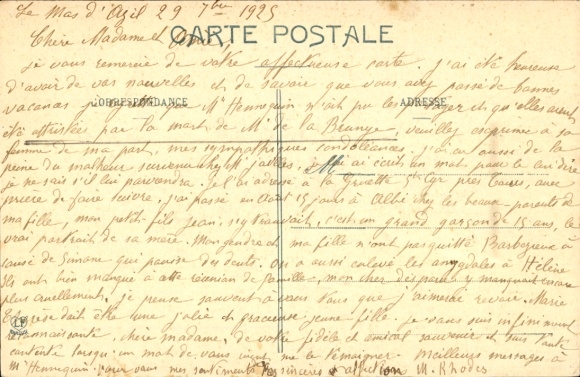 Le Mas d'Azil 29 7bre 1925
CARTE POSTALE
Chère Madame et amie
Je vous remercie de votre affectueuse carte. J'ai été heureuse
d'avoir de vos nouvelles et de savoir que vous avez passé de bonnes
vacances que Mr Hennequin n'ait pu les et qu'elles aient
CORRESPONDANCE
ADRESSE
été attristées par la mort de Mr de la Beunye, veuillez exprimer à sa
femme de ma part, mes sympathiques condoléances. J'ai eu aussi de la
peine du malheur survenu chez Mr je lui ai écrit un mot pour le lui dire
je ne sais s'il lui parviendra. Je l'ai adressé à la Gruette St Cyr près Tours, avec
prière de faire suivre. J'ai passé en Août 15 jours à Albi chez les beaux-parents de
ma fille, mon petit-fils Jean s'y trouvait, c'est un grand garçon de 15 ans, le
vrai portrait de sa mère. Mon gendre et ma fille n'ont pas quitté Barbezieux à
cause de Simone qui pour ses dents. On a aussi enlevé les amygdales à Hélène
Ils ont bien manqué à cette réunion de famille, mon cher disparu y manquait encore
plus cruellement, je pense souvent à vous tous que j'aimerai revoir. Marie
doit être une jolie et gracieuse jeune fille. Je vous suis infiniment
reconnaissante, chère madame, de votre fidèle et amical souvenir et suis toute
contente lorsqu'un mot de vous vient me le témoigner. Meilleurs messages à
Mr Hennequin pour vous mes sentiments sincères d'affection M. Rhodes